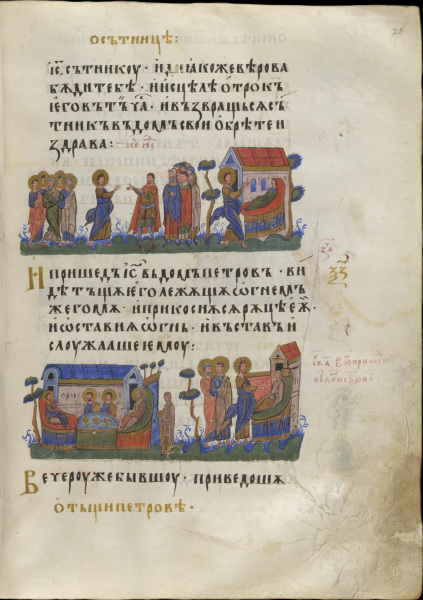 О СЪТНИЦѢ:
І҃С СЪТНИКОУ · ИДИ ꙖКОЖЕ ВѢРОВА
БѪДИ ТЕБѢ · И ИСЦѢЛѢ ОТРОК
ЕГО ВЪ ТЪ ЧА · И ВЪЗВРАЩЬСѦ СЪ
ТНИКЪ ВЪ ДОМЪ СВОИ ОБРѢТЕ И
ЗДРАВА:
И ПРИШЕДЪ І҃С ВЪ ДОМЪ ПЕТРОВЪ · ВИ
ДѢ ТЪЩѪ ЕГО ЛЕЖѦЩѪ ѠГНЕМЪ
ЖЕГОМѪ · И ПРИКОСНѪСѦ РѪЦѢ ЕѪ ·
И ОСТАВИ Ѫ ѠГНЬ · И ВЪСТА И
СЛОУЖАШЕ ЕМОУ:
ВЕЧЕРОУ ЖЕ БЫВШОУ · ПРИВЕДОШѪ
О ТЪЩИ ПЕТРОВѢ ·